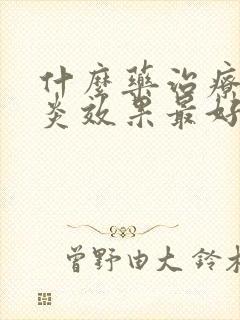 什麼藥治療
炎效果最好
曾野由大 鈴木